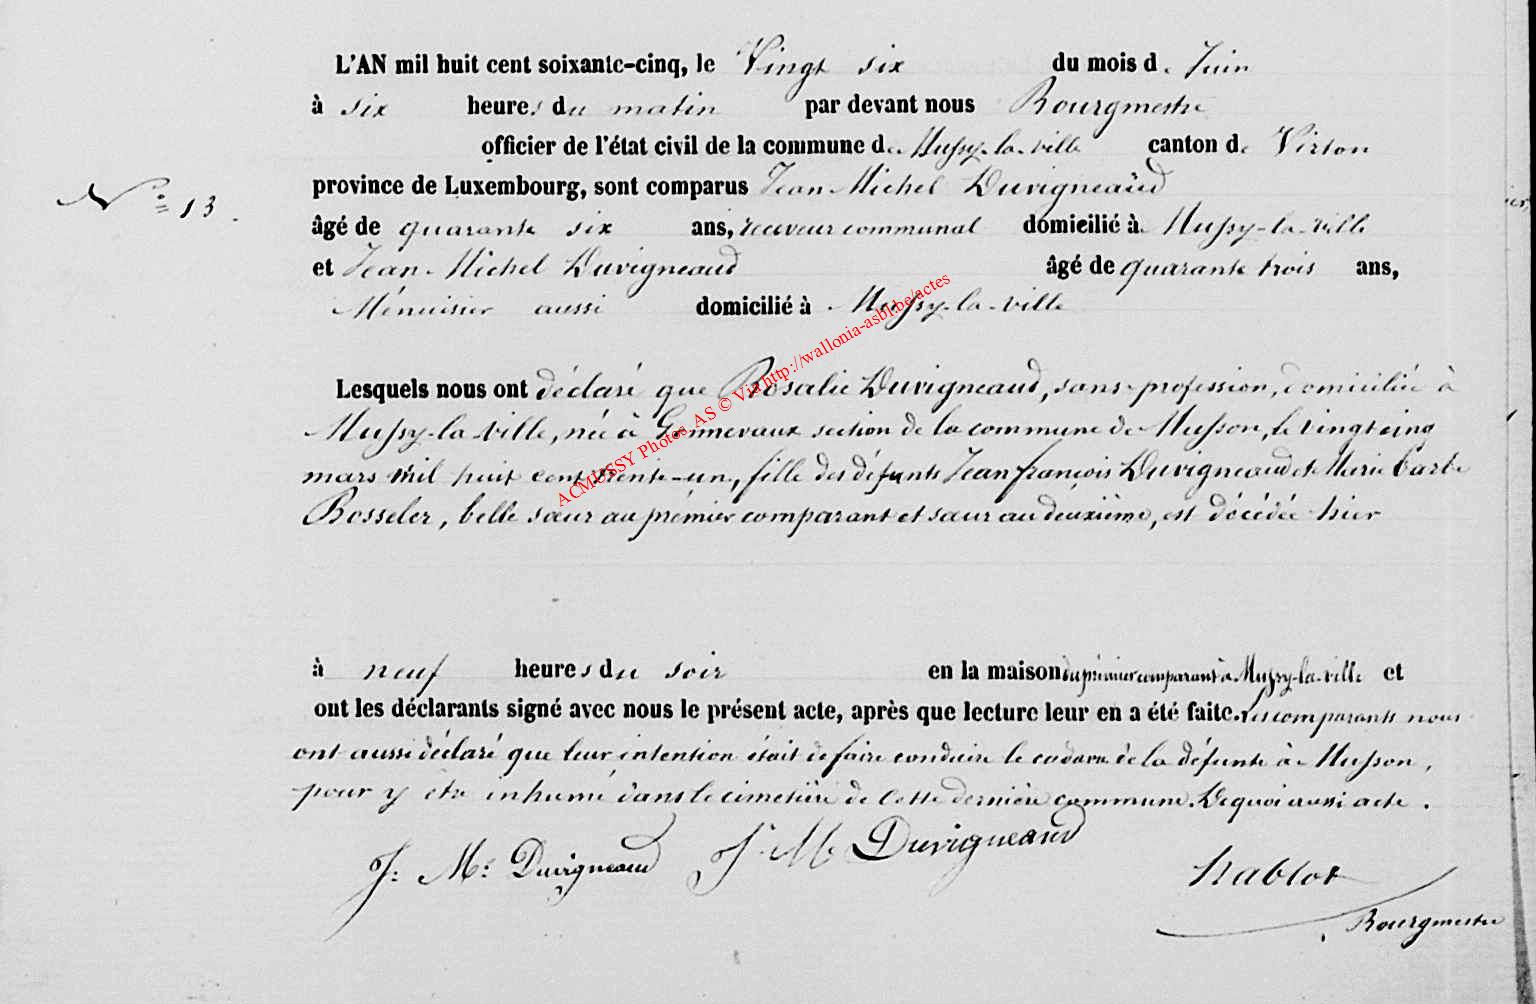 L'AN mil huit cent soixante-cinq, le Vingt six du mois de Juin
à six heures du matin par devant nous Bourgmestre
officier de l'état civil de la commune de Mussy-la-ville canton de Virton
province de Luxembourg, sont comparus Jean Michel Duvigneaud
N° 13.
âgé de quarante six ans, receveur communal domicilié à Mussy-la-ville
et Jean Michel Duvigneaud âgé de quarante trois ans,
Ménuisier aussi domicilié à Mussy-la-ville
Lesquels nous ont déclaré que Rosalie Duvigneaud, sans profession, domiciliée à
Mussy-la-ville, née à Gennevaux section de la commune de Musson, le vingt cinq
mars mil huit cent trente-un, fille des défunts Jean françois Duvigneaud et Marie Barbe
Bosseler, belle sœur au prémier comparant et sœur au deuxième, est décédée hier
à neuf heures du soir en la maison du prémier comparant à Mussy-la-ville et
ont les déclarants signé avec nous le présent acte, après que lecture leur en a été faite. Les comparants nous
ont aussi déclaré que leur intention était de faire conduire le cadavre de la défunte à Musson,
pour y être inhumé dans le cimetière de cette dernière commune. De quoi aussi acte.
J: M: Duvigneaud J. M. Duvigneaud
hablot
Bourgmestre
ACMUSSY Photos AS © Via http://wallonia-asbl.be/actes